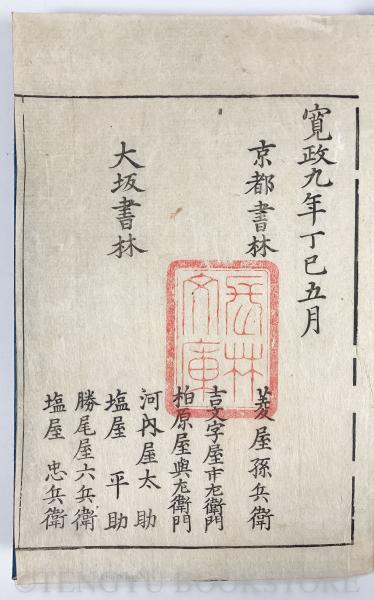 寛政九年丁巳五月
京都書林
菱屋孫兵衛
大坂書林
吉文字屋市左衛門
柏原屋與左衛門
河内屋太助
塩屋平助
勝尾屋六兵衛
塩屋忠兵衛
文庫
©TENGYU BOOKSTORE